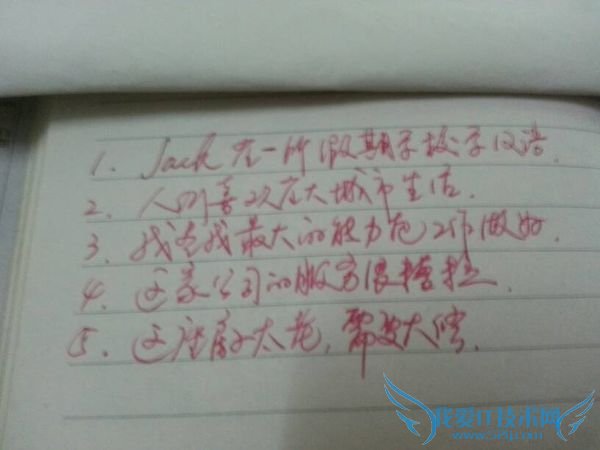 1. Jack在一所假期学校学汉语.
2. 人们喜欢在大城市生活.
3. 我尽我最大的能力把工作做好.
4. 这家公司的服务很糟糕.
5. 这座房子太旧, 需要大修.
我爱IT技术网
www.52ij.com